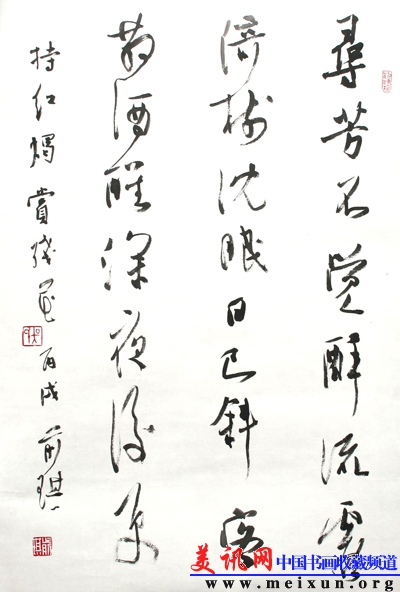 尋芳不覺醉流霞
倚樹沈眠日已斜客
散酒醒深夜後更
持紅燭賞殘花 丙戌 前琪
美讯网 中国书画收藏频道
www.meixun.org